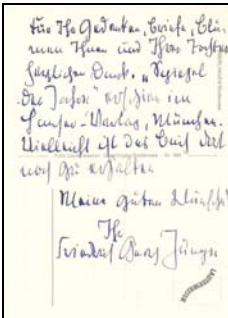 Für Ihr Gedenken, Briefe, Blu-
men Ihnen und Ihrer Tochter
herzlichen Dank. „Spiegel
der Jahre" erschien im
Hanser-Verlag, München.
Vielleicht ist das Buch dort
noch zu erhalten
Meine guten Wünsche
Ihr
Friedrich Georg Jünger